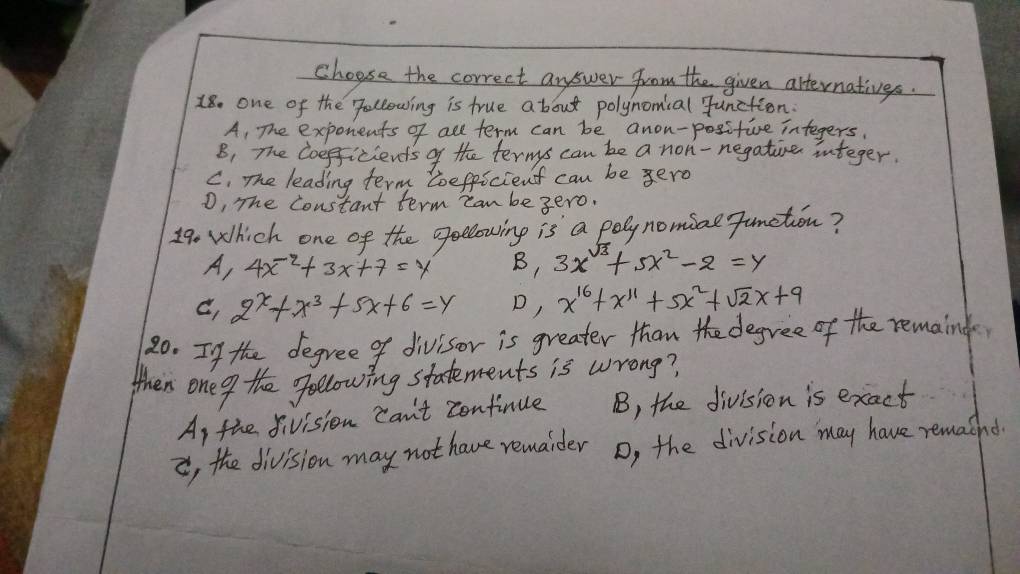 Choose the correct answer from the given alternatives.
18. One of the Following is true about polynomial Function.
A, The exponents of all term can be anon-positive integers.
B, The Coefficients of the terms can be a non-negative integer.
C, The leading term Coefficient can be zero
D, The Constant term can be zero.
19. Which one of the Following is a polynomial Function?
A, 4x⁻²+3x+7=y B, 3x^√3+5x²-2=y
C, 2ˣ+x³+5x+6=y D, x¹⁶+x¹¹+5x²+√2x+9
20. If the degree of divisor is greater than the degree of the remainder
then one of the Following statements is wrong?
A, the division can't continue B, the division is exact
C, the division may not have remaider D, the division may have remaind.